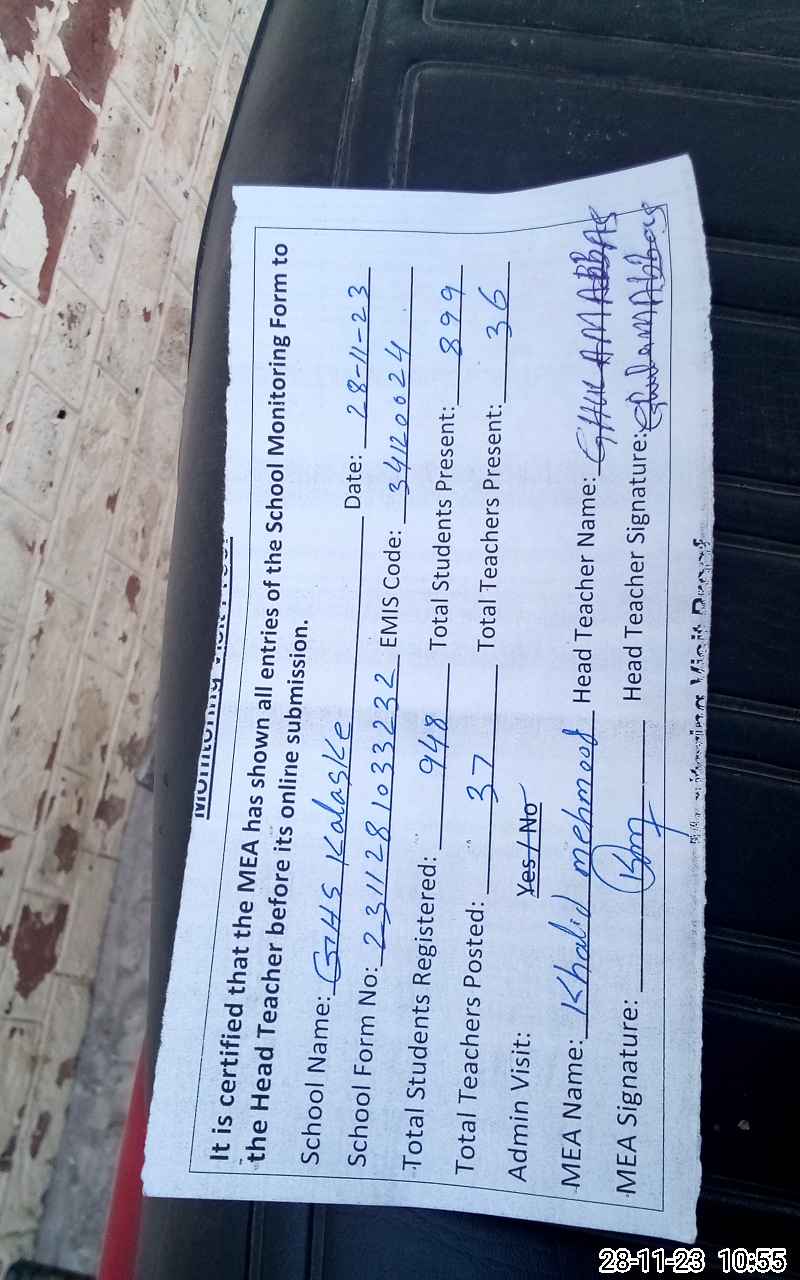 Monitoring Visit Proof
It is certified that the MEA has shown all entries of the School Monitoring Form to
the Head Teacher before its online submission.
School Name: GHS Kalaske Date: 28-11-23
School Form No: 2311281033232 EMIS Code: 34120024
Total Students Registered: 948 Total Students Present: 899
Total Teachers Posted: 37 Total Teachers Present: 36
Admin Visit: Yes / No
MEA Name: Khalid mehmood Head Teacher Name: GHULAM ABBAS
MEA Signature: Head Teacher Signature: Ghulam Abbas
Monitoring Visit Proof
28-11-23 10:55